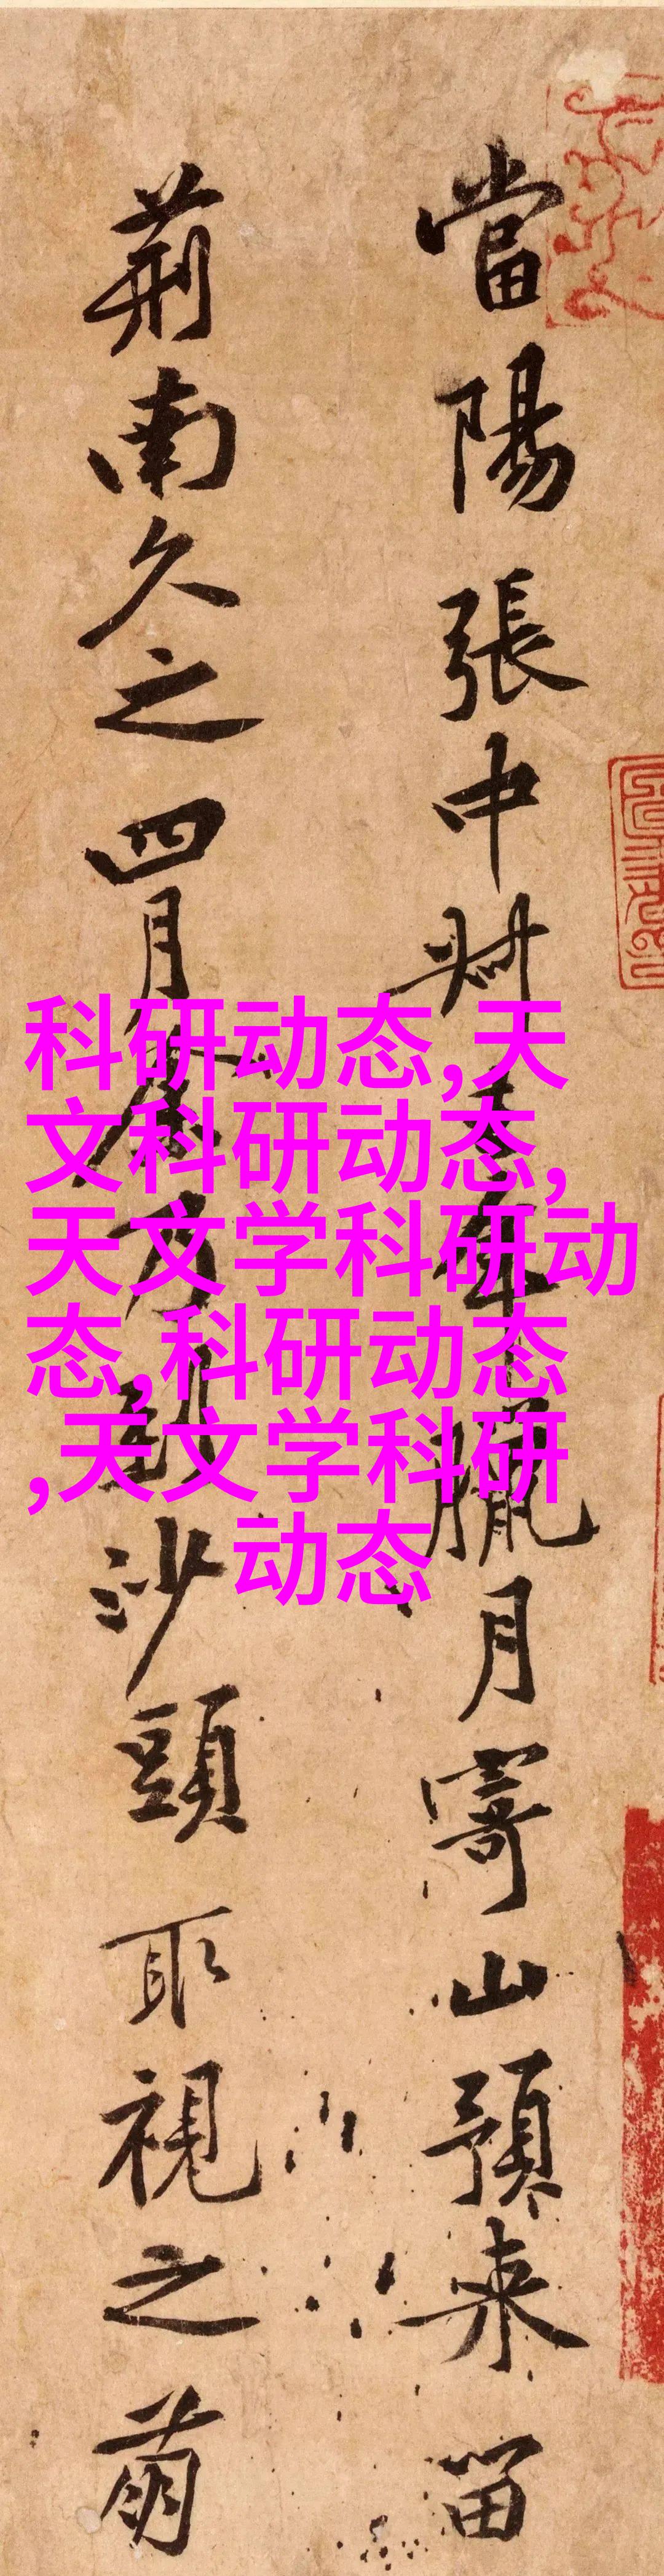 當陽張中叔去年臘月寄山預来留
荊南久之四月余乃到沙頭取視之萌
科研动态,天
文科研动态,
天文学科研动
态,科研动态
,天文学科研
动态